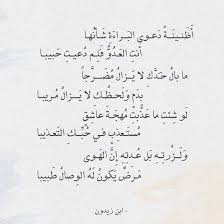 أَظَنينَةٌ دَعوى البَراءَةِ شَأنُها
أَنتِ العَدُوُّ فَلِم دُعيتِ حَبيبا
ما بالُ خَدِّكِ لا يَزالُ مُضَرَّجاً
بِدَمٍ وَلَحظُكِ لا يَزالُ مُريبا
لَو شِئتِ ما عَذَّبتِ مُهجَةَ عاشِقٍ
مُستَعذِبٍ في حُبِّكِ التَعذيبا
وَلَزُرتِهِ بَل عُدتِهِ إِنَّ الهَوى
مَرَضٌ يَكونُ لَهُ الوِصالُ طَبيبا
- ابن زيدون